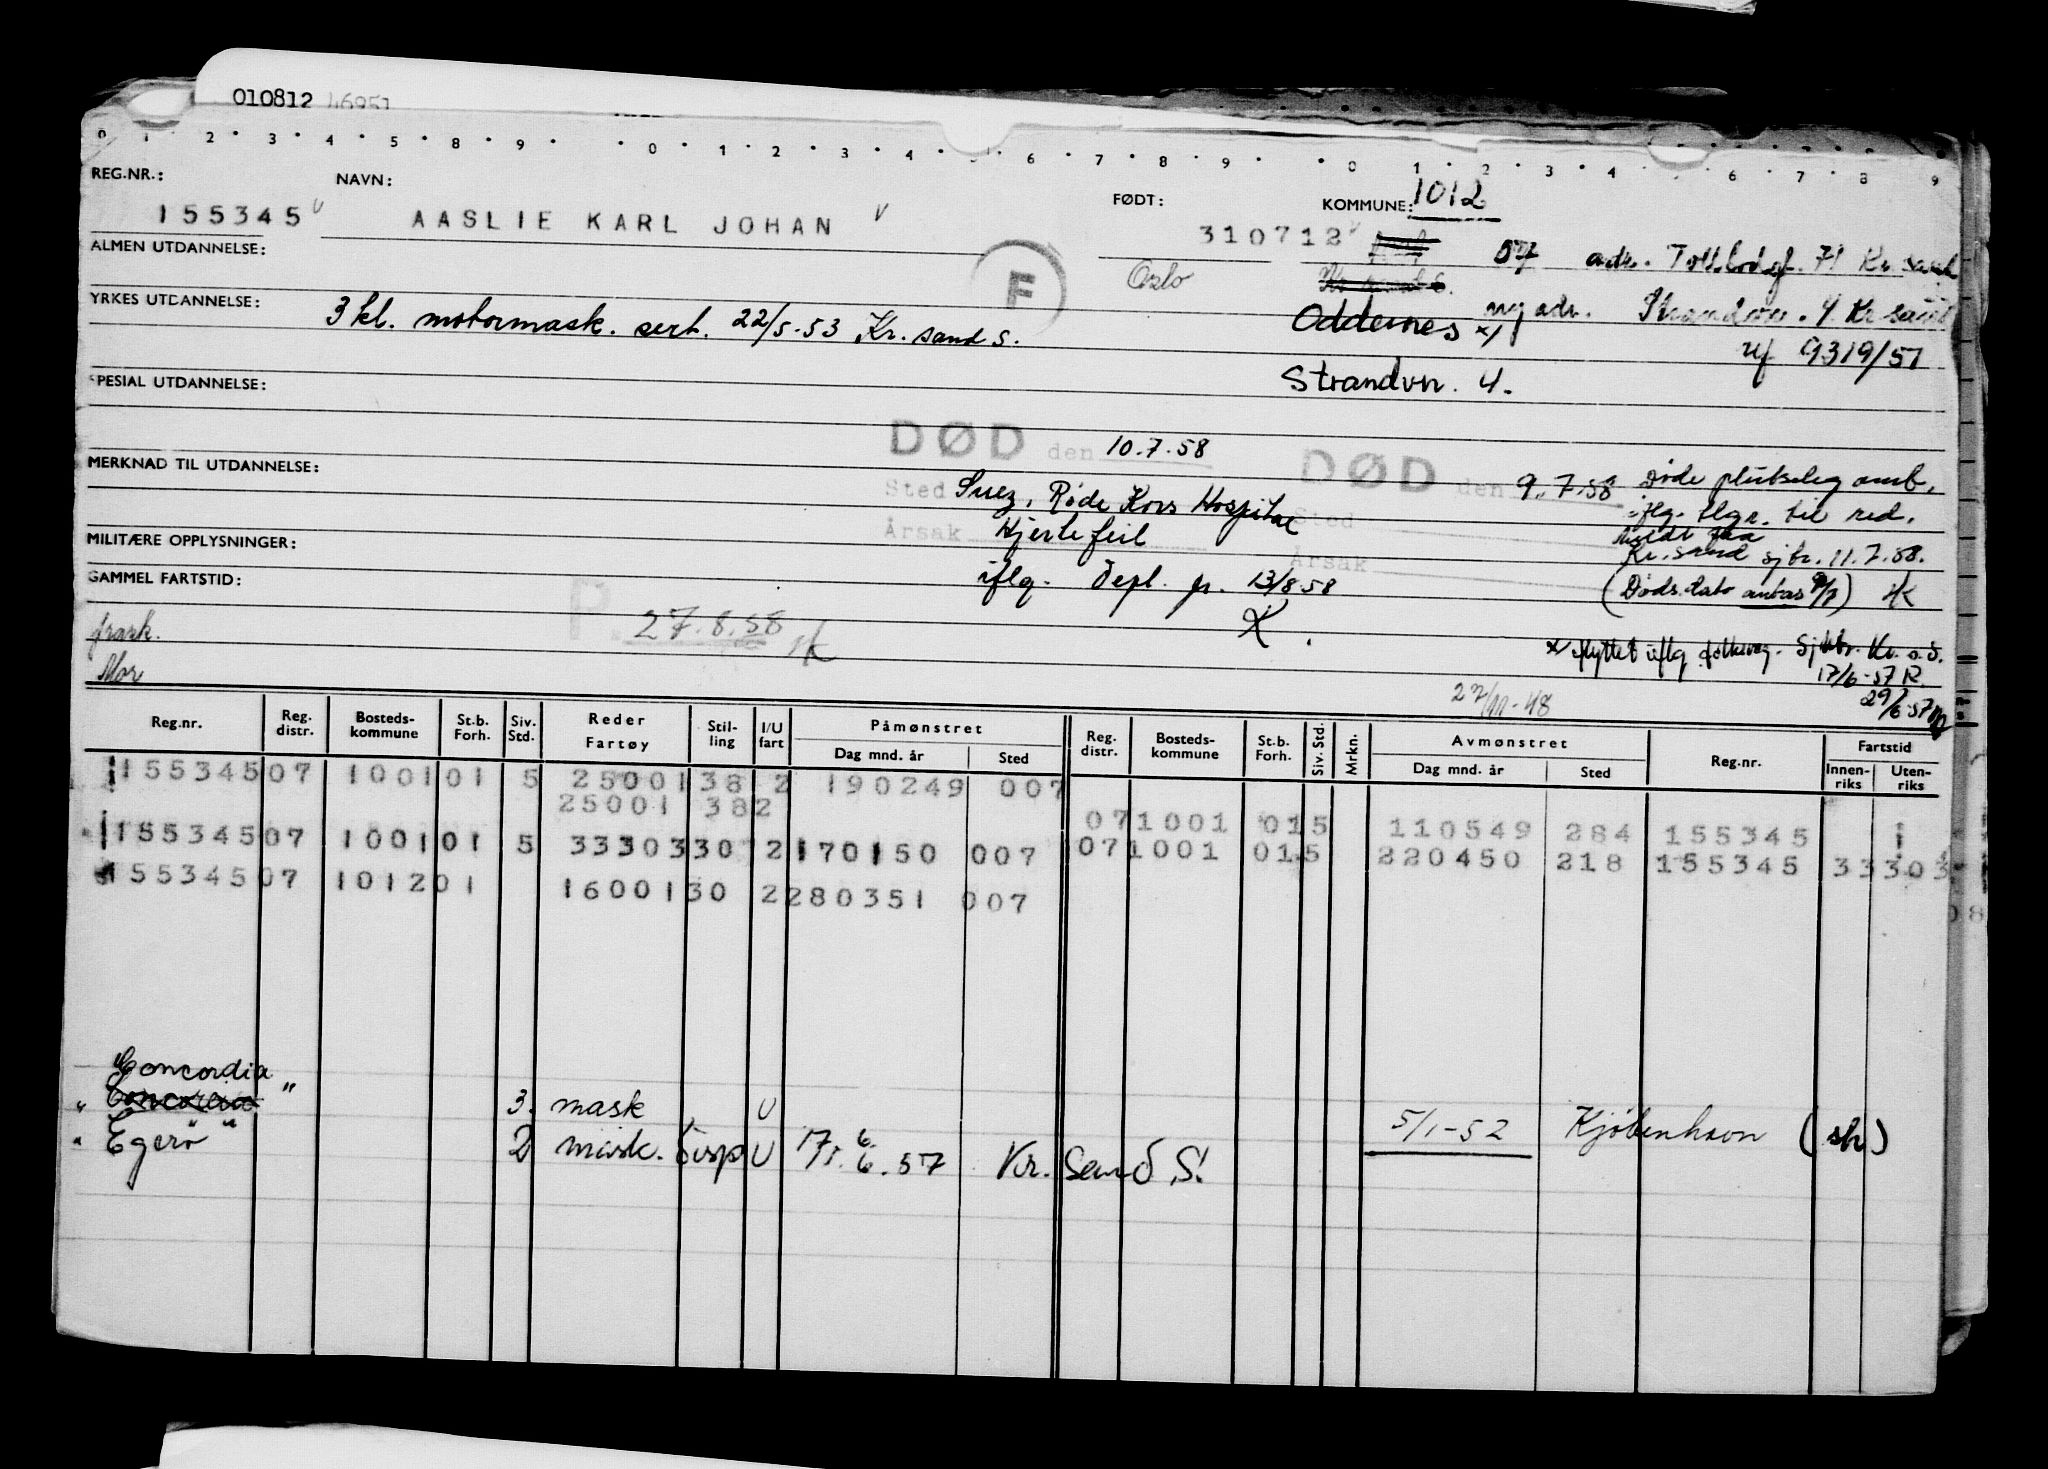 010812 46951
0 1 2 3 4 5 8 9 0 1 2 3 4 6 7 8 9 0 1 2 3 4 6 7 8 9
REG.NR.: NAVN: FØDT: KOMMUNE: 1012
155345 AASLIE KARL JOHAN 310712 57 adr. Tollbodgt. 71 Kr. sand
ALMEN UTDANNELSE: F Oslo
YRKES UTDANNELSE: 3 kl. motormask. sert. 22/5-53 Kr. sand S. Oddernes x) ny adr. Strandvn. 4 Kr sand
9319/57
SPESIAL UTDANNELSE: Strandvn. 4.
DØD den 10.7.58 DØD den 9.7.58 Døde plutseleg omb.
MERKNAD TIL UTDANNELSE: Sted Suez, Røde Kors Hospital Sted iflg. tlgr. til red.
Årsak Hjertefeil Årsak Meldt fra
MILITÆRE OPPLYSNINGER: Kr. sand sjbr. 11.7.58.
iflg. Depl. pr. 13/8-58 (Døds.dato antas 9/7) HK
GAMMEL FARTSTID: P 27.8.58 HK X.
frask. x) flyttet iflg folkereg. Sjbr. Kr. s. S.
Mor 17/6-57 R.
27/11-48 29/6-57
Reg.nr. Reg. distr. Bosteds- kommune St.b. Forh. Siv. Std. Reder Fartøy Stil- ling I/U fart Påmønstret Dag mnd. år Sted Reg. distr. Bosteds- kommune St.b. Forh. Siv. Std. Mrkn. Avmønstret Dag mnd. år Sted Reg.nr. Fartstid Innen- riks Uten- riks
155345 07 1001 01 5 25001 38 2 190249 007
25001 38 2 07 1001 01 5 110549 284 155345
155345 07 1001 01 5 33303 30 2 170150 007 07 1001 01 5 220450 218 155345 33303
155345 07 1012 01 16001 30 2 280351 007
"Concordia
" Concordia " 3. mask U 5/1-52 Kjøbenhavn (sh)
" Egerø " 2 mask. Disp U 17/6. 6.57 Kr. Sand S.